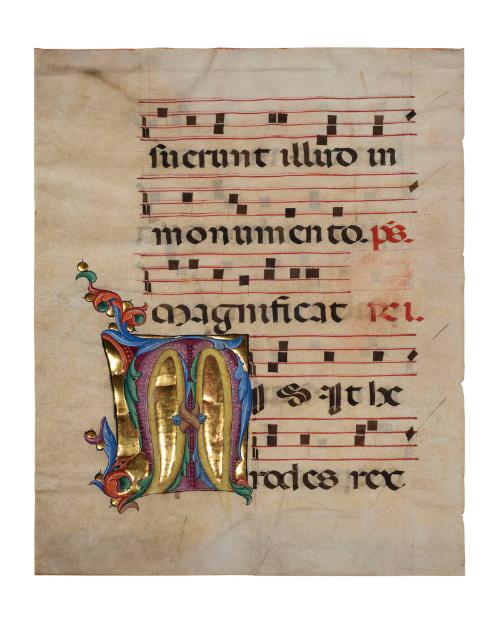 suerunt illud in
monumento. ps.
magnificat rei.
MISIt he
rodes rex